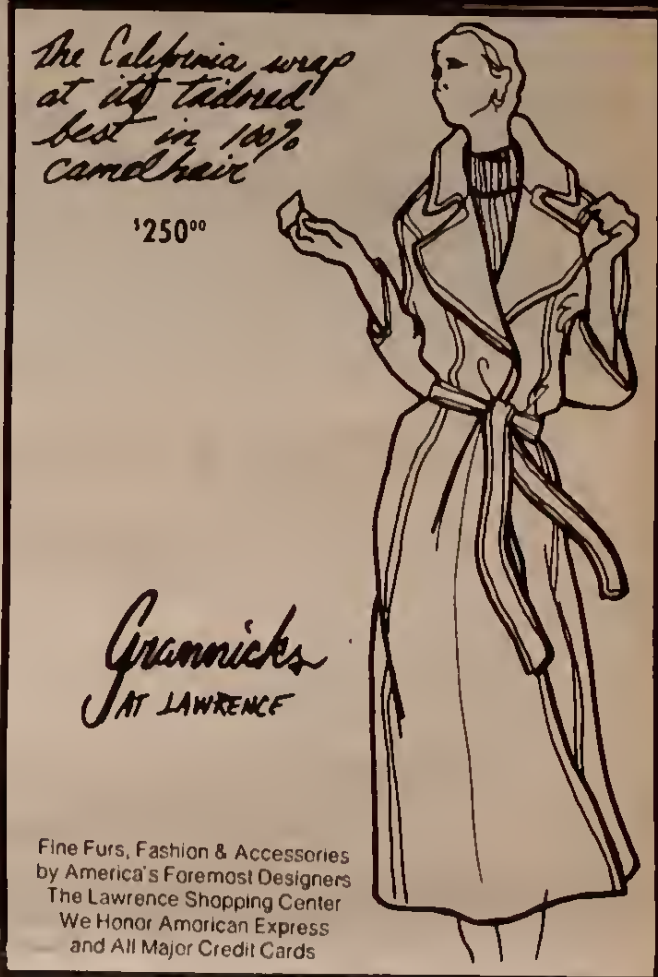 The California wrap
at its tailored
best in 100%
camelhair
$250⁰⁰
Grannicks
AT LAWRENCE
Fine Furs, Fashion & Accessories
by America's Foremost Designers
The Lawrence Shopping Center
We Honor American Express
and All Major Credit Cards